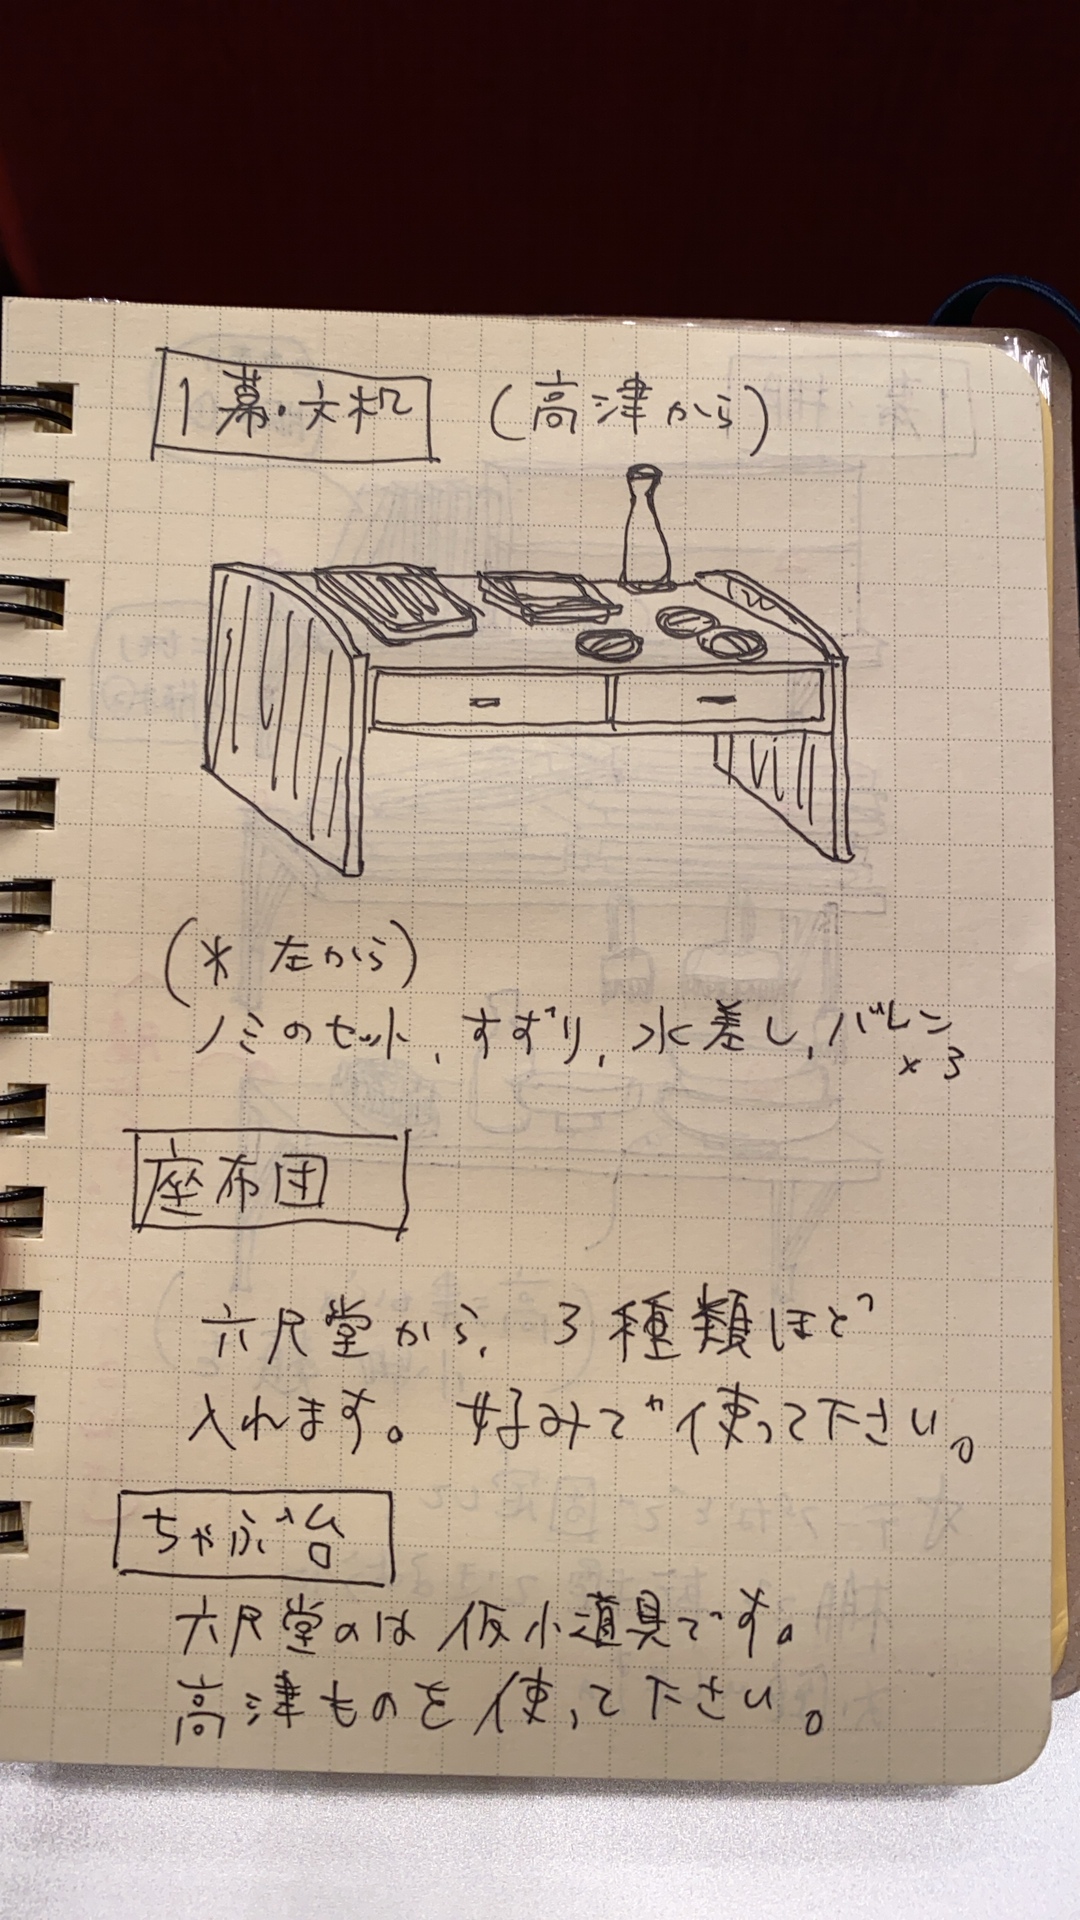 1幕・文机 (高津から)
(* 左から)
ノミのセット, すずり, 水差し, バレン
×3
座布団
六尺堂から, 3種類ほど
入れます。好みで使って下さい。
ちゃぶ台
六尺堂のは仮小道具です。
高津ものを使って下さい。